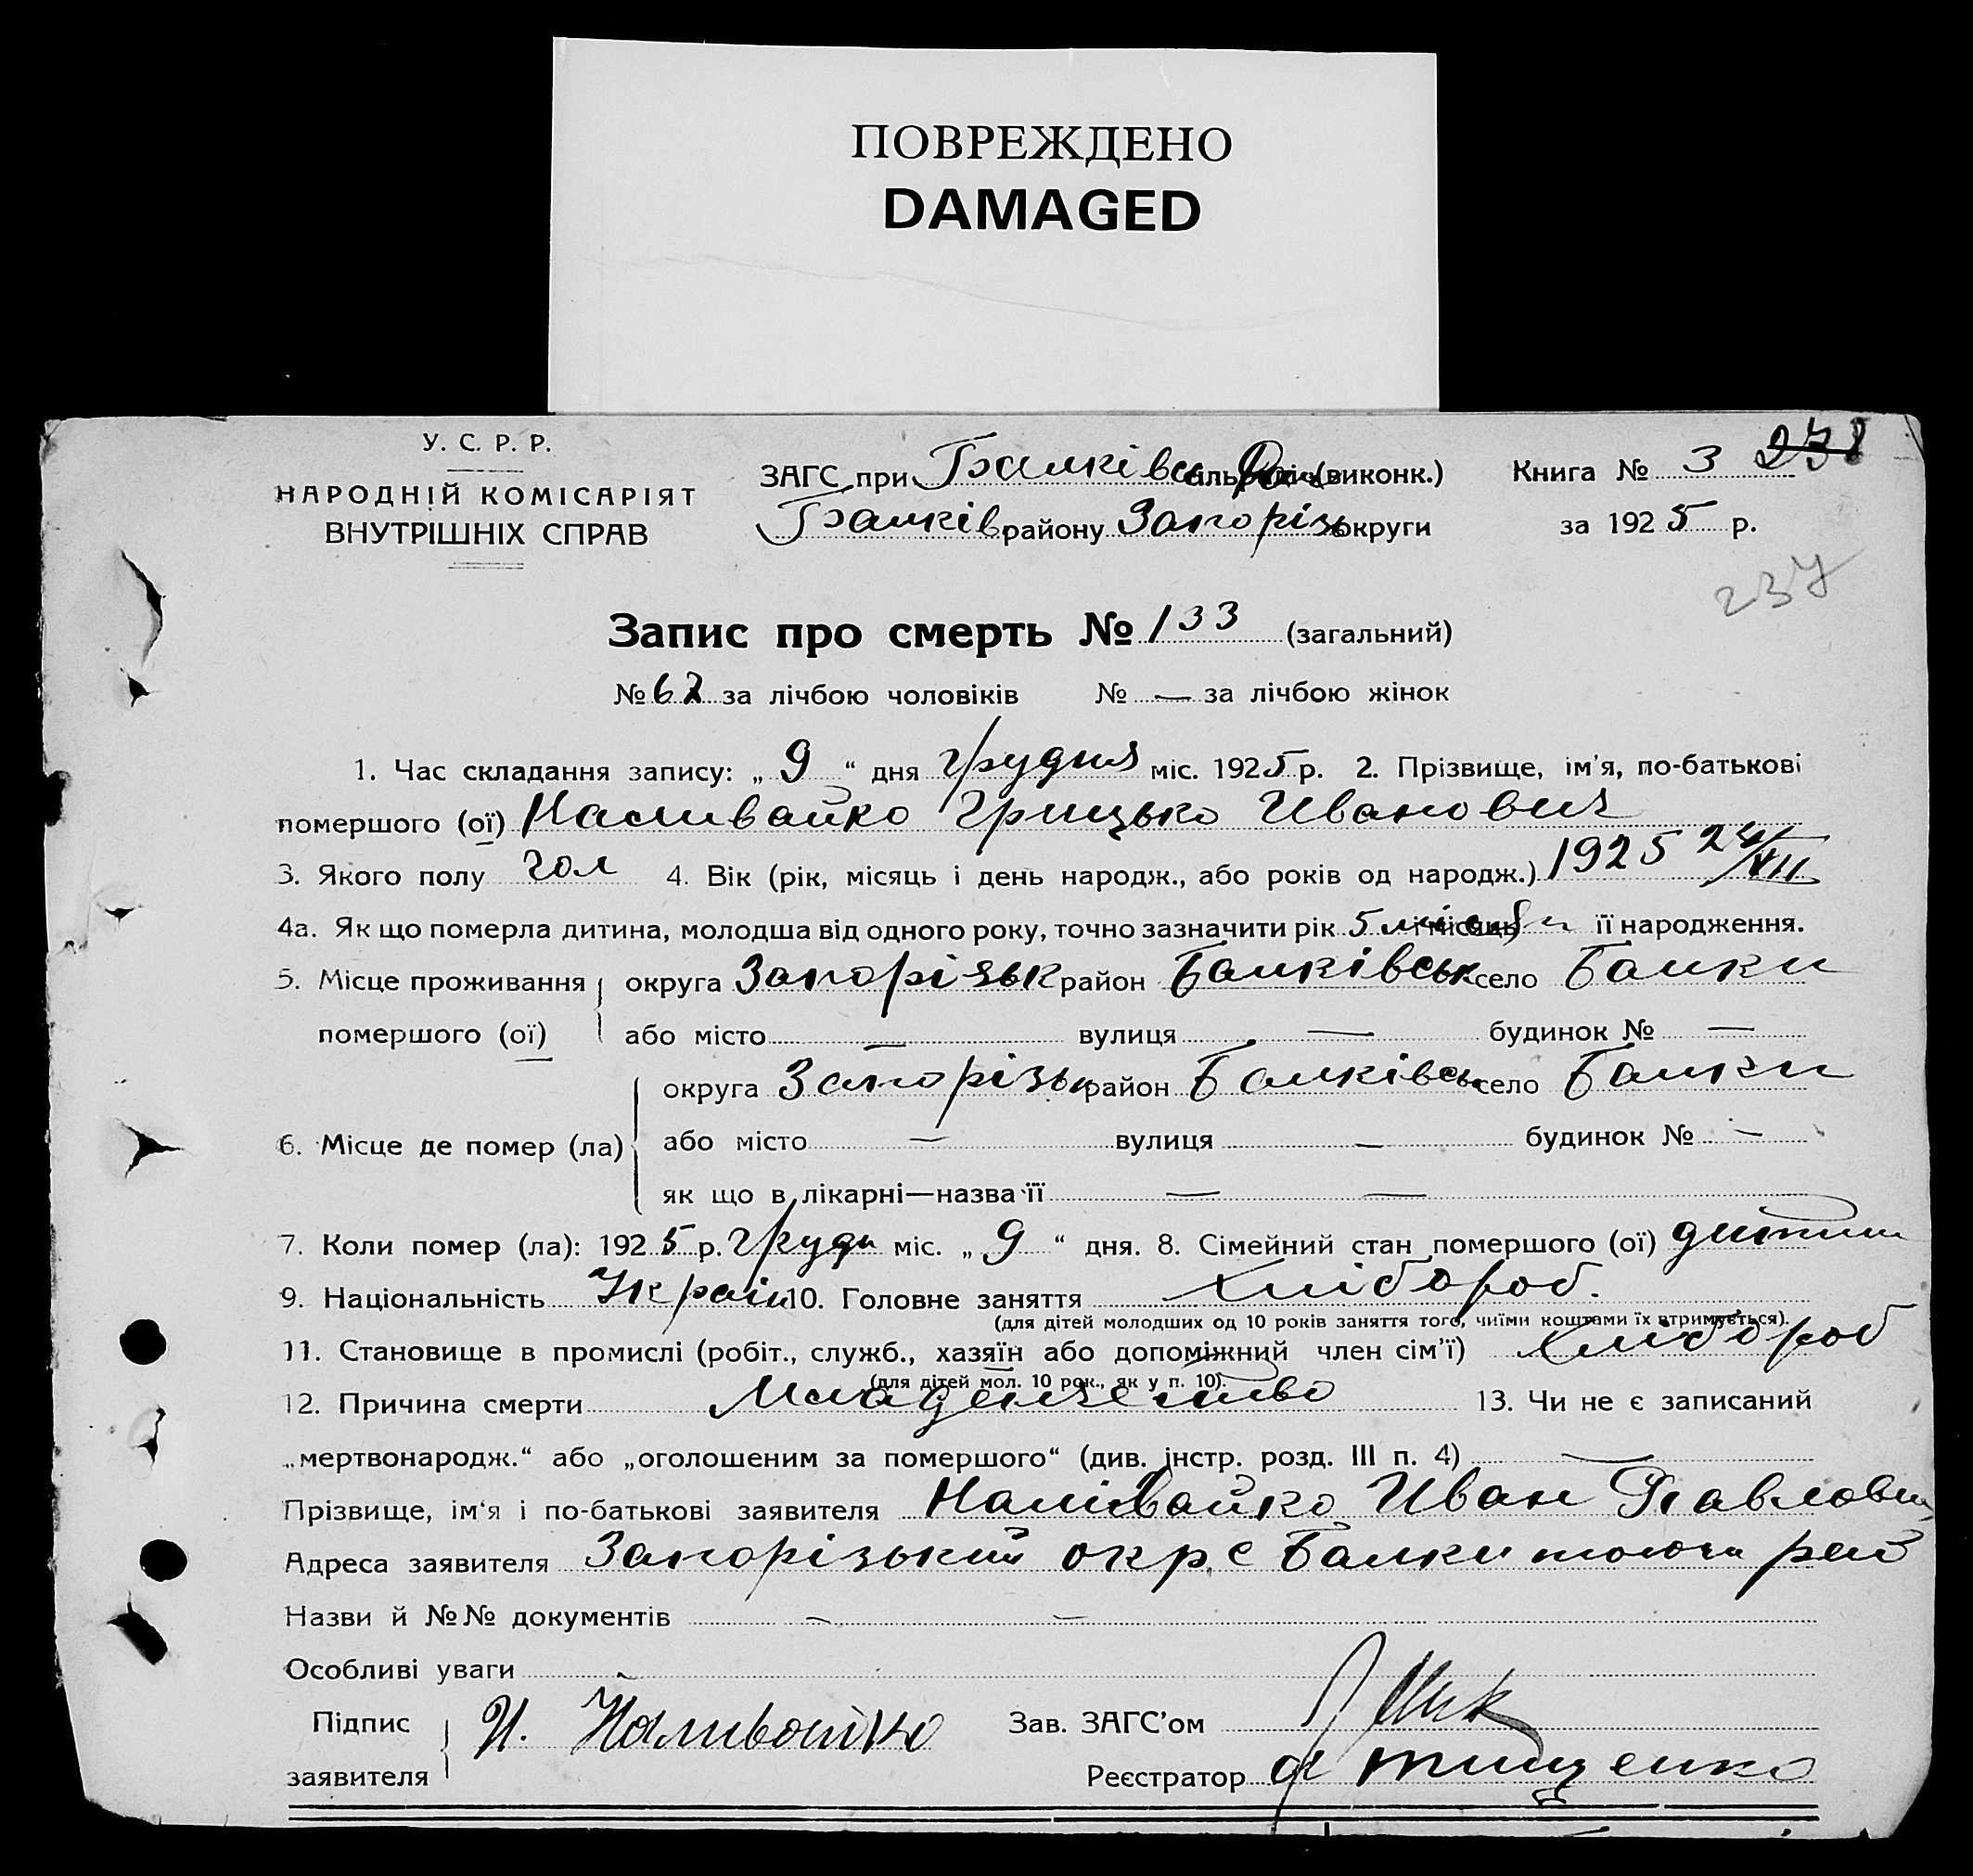 ПОВРЕЖДЕНО
DAMAGED
У. С. Р. Р.
НАРОДНІЙ КОМІСАРІЯТ
ВНУТРІШНІХ СПРАВ
ЗАГС при Балків сільраді (виконк.)
Балків району Запоріз округи
Книга № 3 238
за 1925 р.
237
Запис про смерть № 133 (загальний)
№ 62 за лічбою чоловіків № — за лічбою жінок
1. Час складання запису: „ 9 “ дня грудня міс. 1925 р. 2. Прізвище, ім'я, по-батькові
помершого (ої) Наливайко Грицько Иванович
3. Якого полу чол 4. Вік (рік, місяць і день народж., або років од народж.) 1925 24/VII
4а. Як що померла дитина, молодша від одного року, точно зазначити рік 5 і місяць її народження.
5. Місце проживання помершого (ої) округа Запорізьк район Балківськ село Балки
або місто — вулиця — будинок № —
6. Місце де помер (ла) округа Запорізьк район Балківськ село Балки
або місто — вулиця — будинок № —
як що в лікарні—назва її — —
7. Коли помер (ла): 1925 р. грудн міс. „ 9 “ дня. 8. Сімейний стан помершого (ої) дитина
9. Національність Україн 10. Головне заняття Хлібороб.
(для дітей молодших од 10 років заняття того, чиїми коштами їх втримується).
11. Становище в промислі (робіт., служб., хазяїн або допоміжний член сім'ї) Хлібороб
(для дітей мол. 10 рок., як у п. 10).
12. Причина смерти Младенчество 13. Чи не є записаний
„мертвонародж.“ або „оголошеним за помершого“ (див. інстр. розд. III п. 4) —
Прізвище, ім'я і по-батькові заявителя Налівайко Иван Павлович
Адреса заявителя Запорізький окр с Балки рай
Назви й №№ документів — —
Особливі уваги
Підпис заявителя И. Наливайко
Зав. ЗАГС'ом
Реєстратор Тищенко